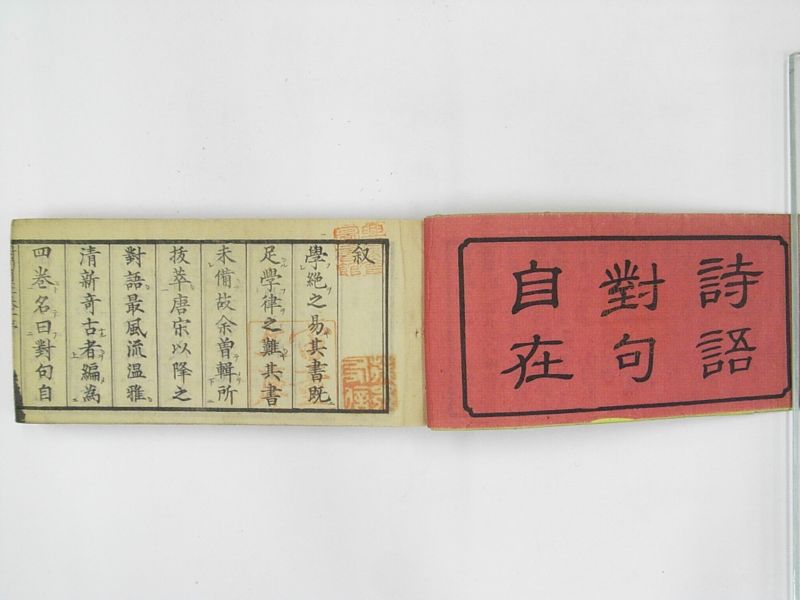 詩語
對句
自在
叙
學絶之易其書既
足學律之難其書
未備故余曽輯所
抜萃唐宋以降之
對語最風流温雅
清新奇古者編為
四巻名曰對句自